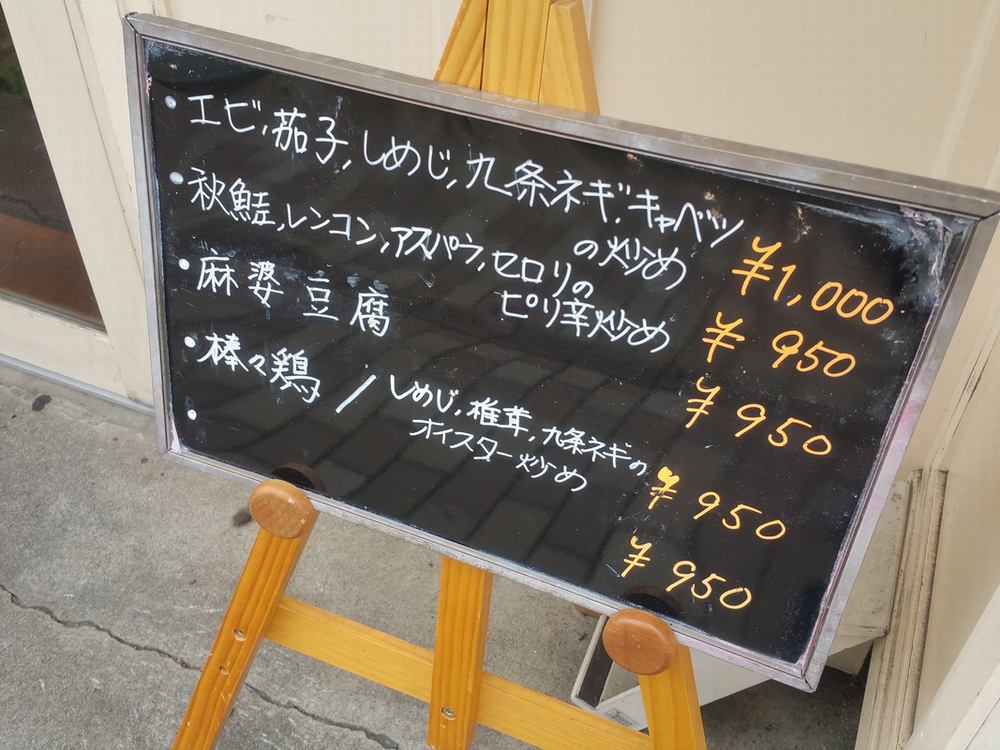 ・エビ,茄子,しめじ,九条ネギ,キャベツ
の炒め ¥1,000
・秋鮭,レンコン,アスパラ,セロリの
ピリ辛炒め ¥950
・麻婆豆腐 ¥950
・棒々鶏/しめじ,椎茸,九条ネギの
オイスター炒め ¥950
・ ¥950